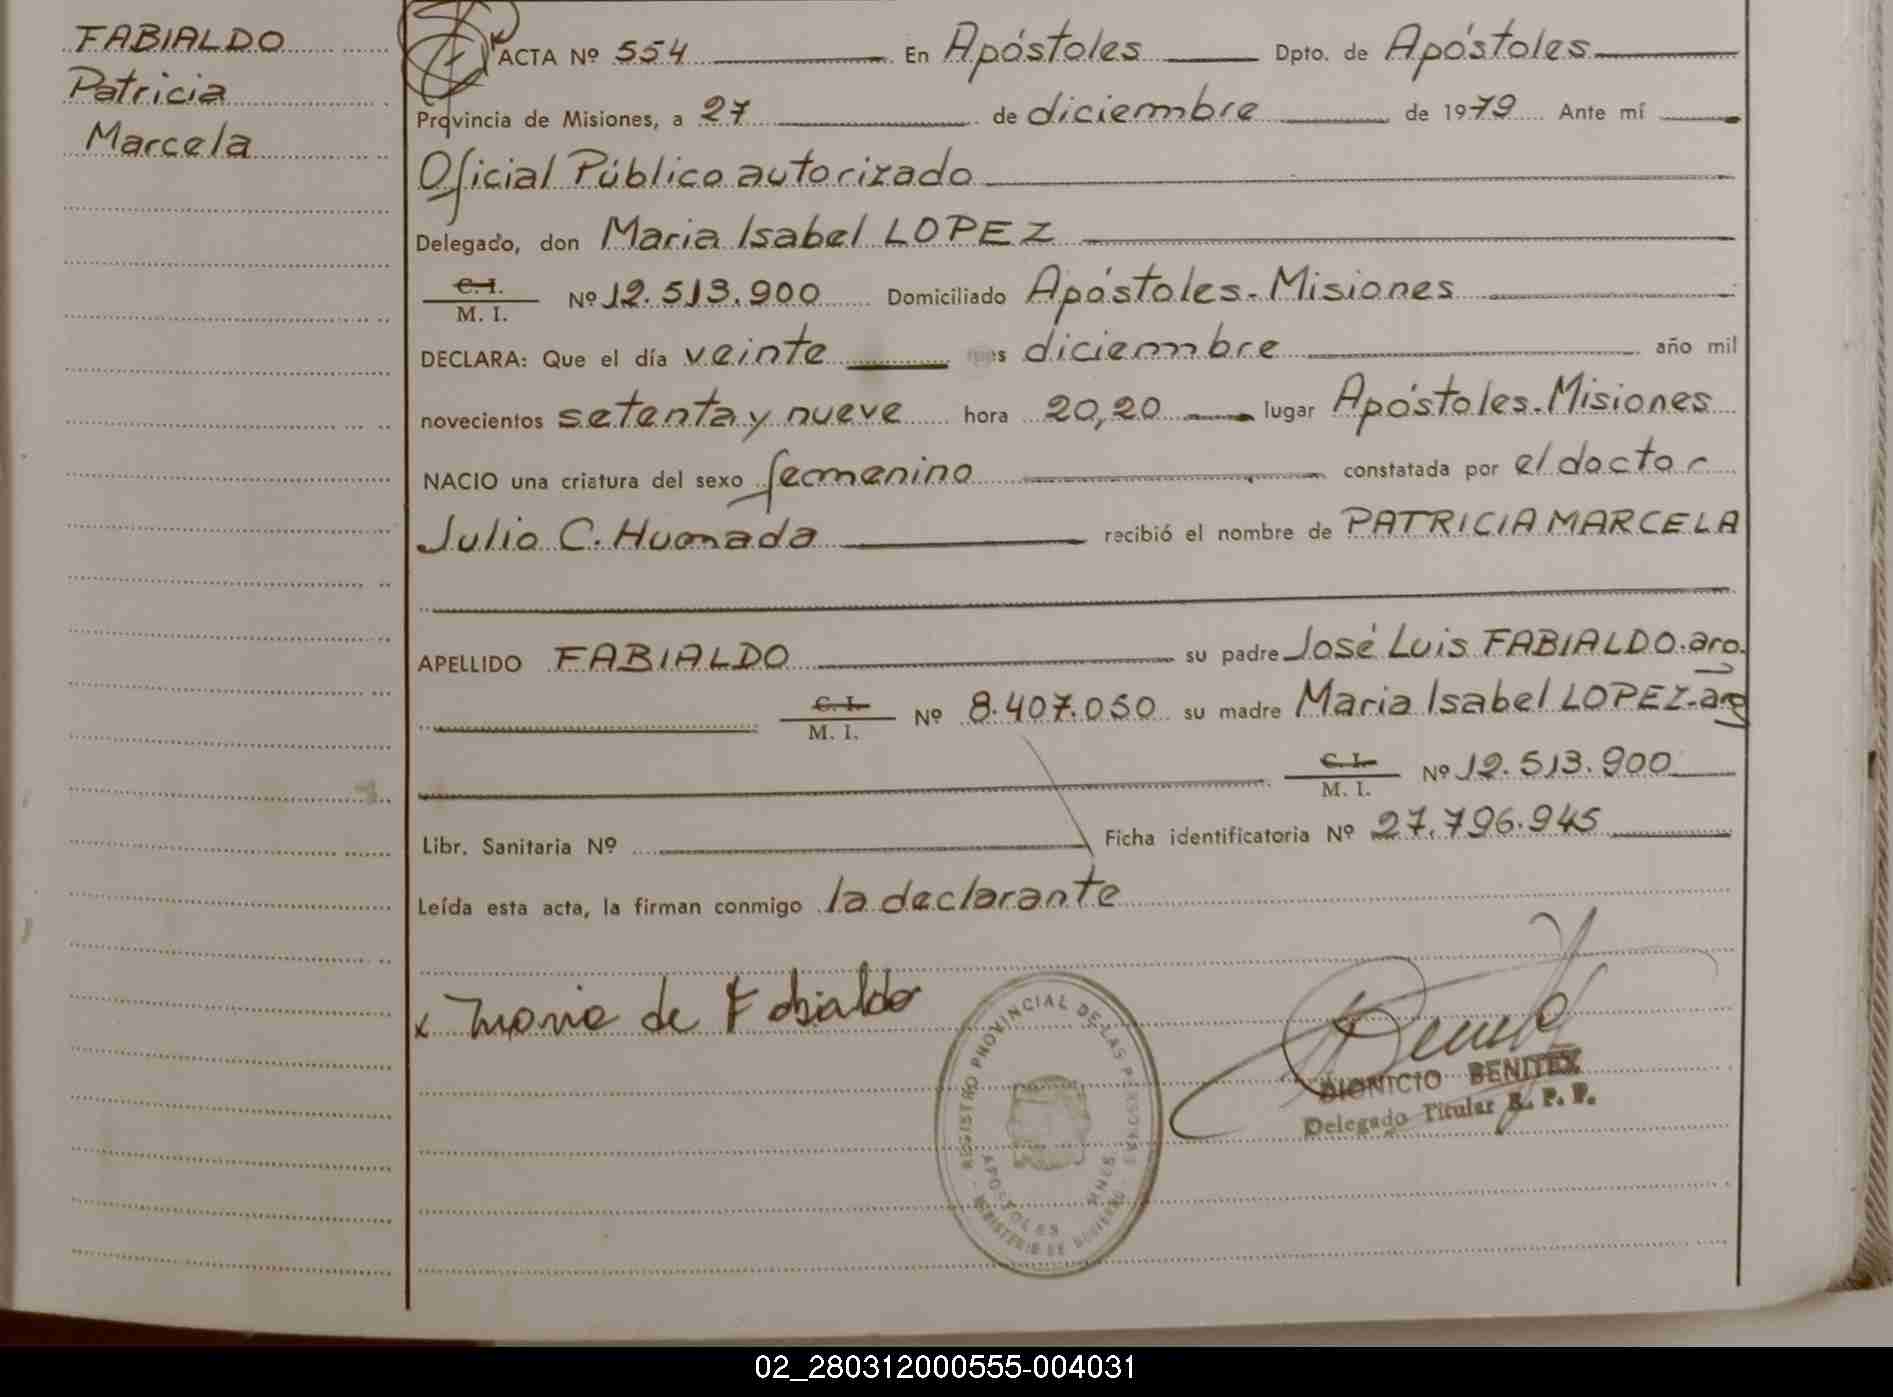 FABIALDO
Patricia
Marcela
ACTA Nº 554 En Apóstoles Dpto. de Apóstoles
Provincia de Misiones, a 27 de diciembre de 1979 Ante mí
Oficial Público autorizado
Delegado, don Maria Isabel LOPEZ
C. I.
M. I. Nº 12.513.900 Domiciliado Apóstoles-Misiones
DECLARA: Que el día veinte mes diciembre año mil
novecientos setenta y nueve hora 20,20 lugar Apóstoles-Misiones
NACIO una criatura del sexo femenino constatada por el doctor
Julio C. Humada recibió el nombre de PATRICIA MARCELA
APELLIDO FABIALDO su padre José Luis FABIALDO-arg.
C. I.
M. I. Nº 8.407.050 su madre Maria Isabel LOPEZ-arg
C. I.
M. I. Nº 12.513.900
Libr. Sanitaria Nº Ficha identificatoria Nº 27.796.945
Leída esta acta, la firman conmigo la declarante
x Maria de Fabialdo
REGISTRO PROVINCIAL DE LAS PERSONAS
APOSTOLES MNES
MINISTERIO DE GOBIERNO
DIONICIO BENITEZ
Delegado Titular R. P. P.
02_280312000555-004031